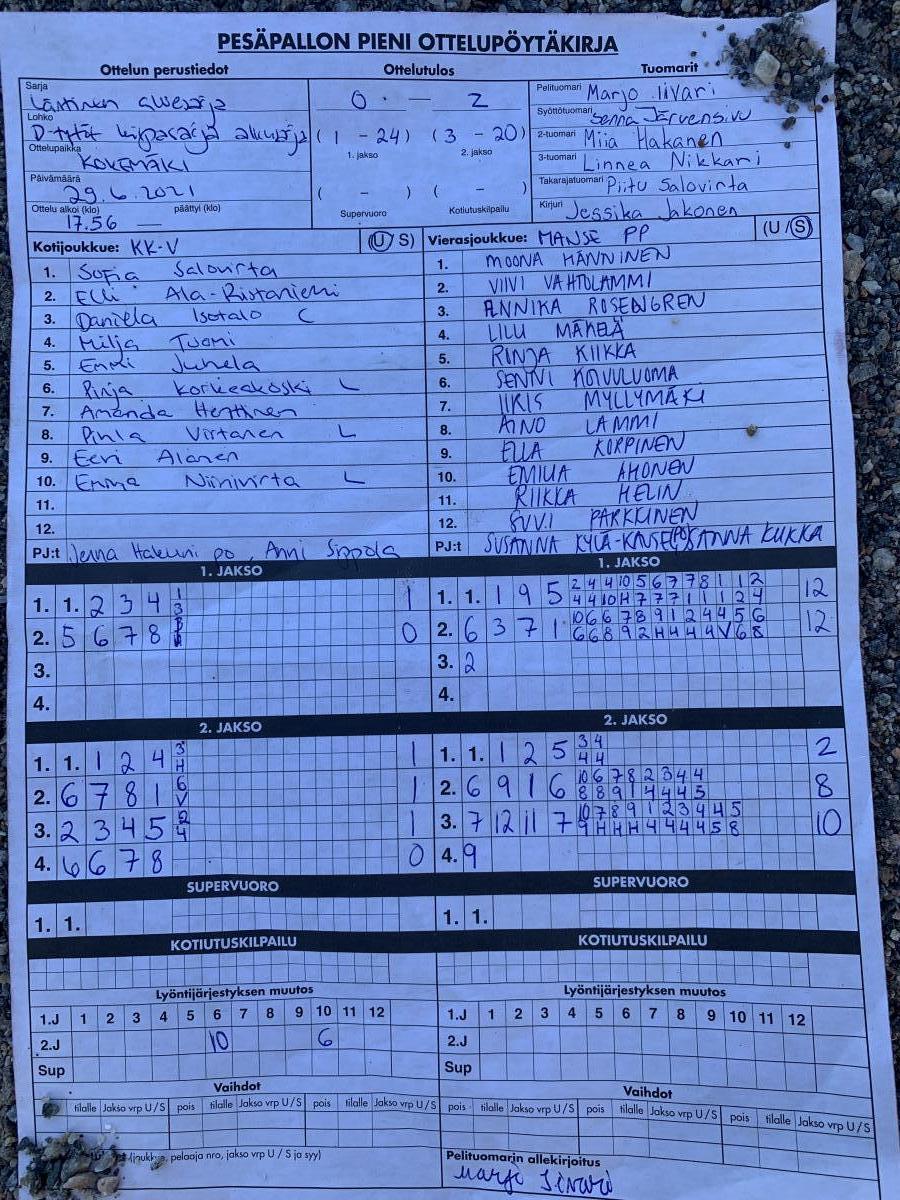 PESÄPALLON PIENI OTTELUPÖYTÄKIRJA
Ottelun perustiedot Ottelutulos Tuomarit
Sarja Läntinen
Lohko D-tytöt
Ottelupaikka KOKEMÄKI
Päivämäärä 29.6.2021
Ottelu alkoi (klo) päättyi (klo)
17.56 —
0 — 2
(1 - 24) (3 - 20)
1. jakso 2. jakso
( - ) ( - )
Supervuoro Kotiutuskilpailu
Pelituomari Marjo Iivari
Syöttötuomari Senna Järvensivu
2-tuomari Miia Hakanen
3-tuomari Linnea Nikkari
Takarajatuomari Piitu Salovirta
Kirjuri Jessika Jakonen
Kotijoukkue: KK-V (U/S)
1. Sofia Salovirta
2. Elli Ala-Ristaniemi
3. Daniela Isotalo C
4. Milja Tuomi
5. Emmi Juhela
6. Pinja Korkeakoski L
7. Amanda Henttinen
8. Pihla Virtanen L
9. Eevi Alanen
10. Emma Niinivirta L
11.
12.
PJ:t Jenna po, Anni Sippola
Vierasjoukkue: MANSE PP (U/S)
1. MOONA MÄNNINEN
2. VIIVI VAHTOLAMMI
3. ANNIKA ROSENGREN
4. LILU MÄKELÄ
5. RONJA KIIKKA
6. SENNI KOIVULUOMA
7. IIRIS MYLLYMÄKI
8. AINO LAMMI
9. ELLA KORPINEN
10. EMILIA AHONEN
11. RIIKKA HELIN
12. SUVI PARKKINEN
PJ:t SUSANNA (PO) SANNA KUKKA
1. JAKSO
1. 1. 2 3 4 1 3 1
2. 5 6 7 8 0
3.
4.
1. JAKSO
1. 1. 1 9 5 2 4 4 10 5 6 7 7 8 1 1 2 12
4 4 10 H 7 7 7 1 1 1 2 4
2. 6 3 7 1 10 6 6 7 8 9 1 2 4 4 5 6 12
6 6 8 9 2 H 4 4 4 V 6 8
3. 2
4.
2. JAKSO
1. 1. 1 2 4 3 H 1
2. 6 7 8 1 6 V 1
3. 2 3 4 5 2 4 1
4. 6 6 7 8 0
2. JAKSO
1. 1. 1 2 5 3 4 2
4 4
2. 6 9 1 6 10 6 7 8 2 3 4 4 8
8 8 9 1 4 4 4 5
3. 7 12 11 7 10 7 8 9 1 2 3 4 4 5 10
9 H H H 4 4 4 4 5 8
4. 9
SUPERVUORO SUPERVUORO
1. 1. 1. 1.
KOTIUTUSKILPAILU KOTIUTUSKILPAILU
Lyöntijärjestyksen muutos
1.J 1 2 3 4 5 6 7 8 9 10 11 12
2.J 10 6
Sup
Lyöntijärjestyksen muutos
1.J 1 2 3 4 5 6 7 8 9 10 11 12
2.J
Sup
Vaihdot
tilalle Jakso vrp U/S pois tilalle Jakso vrp U/S pois tilalle Jakso vrp U/S
Vaihdot
pois tilalle Jakso vrp U/S pois tilalle Jakso vrp U/S pois tilalle Jakso vrp U/S
pelaaja nro, jakso vrp U / S ja syy)
Pelituomarin allekirjoitus
Marjo Iivari